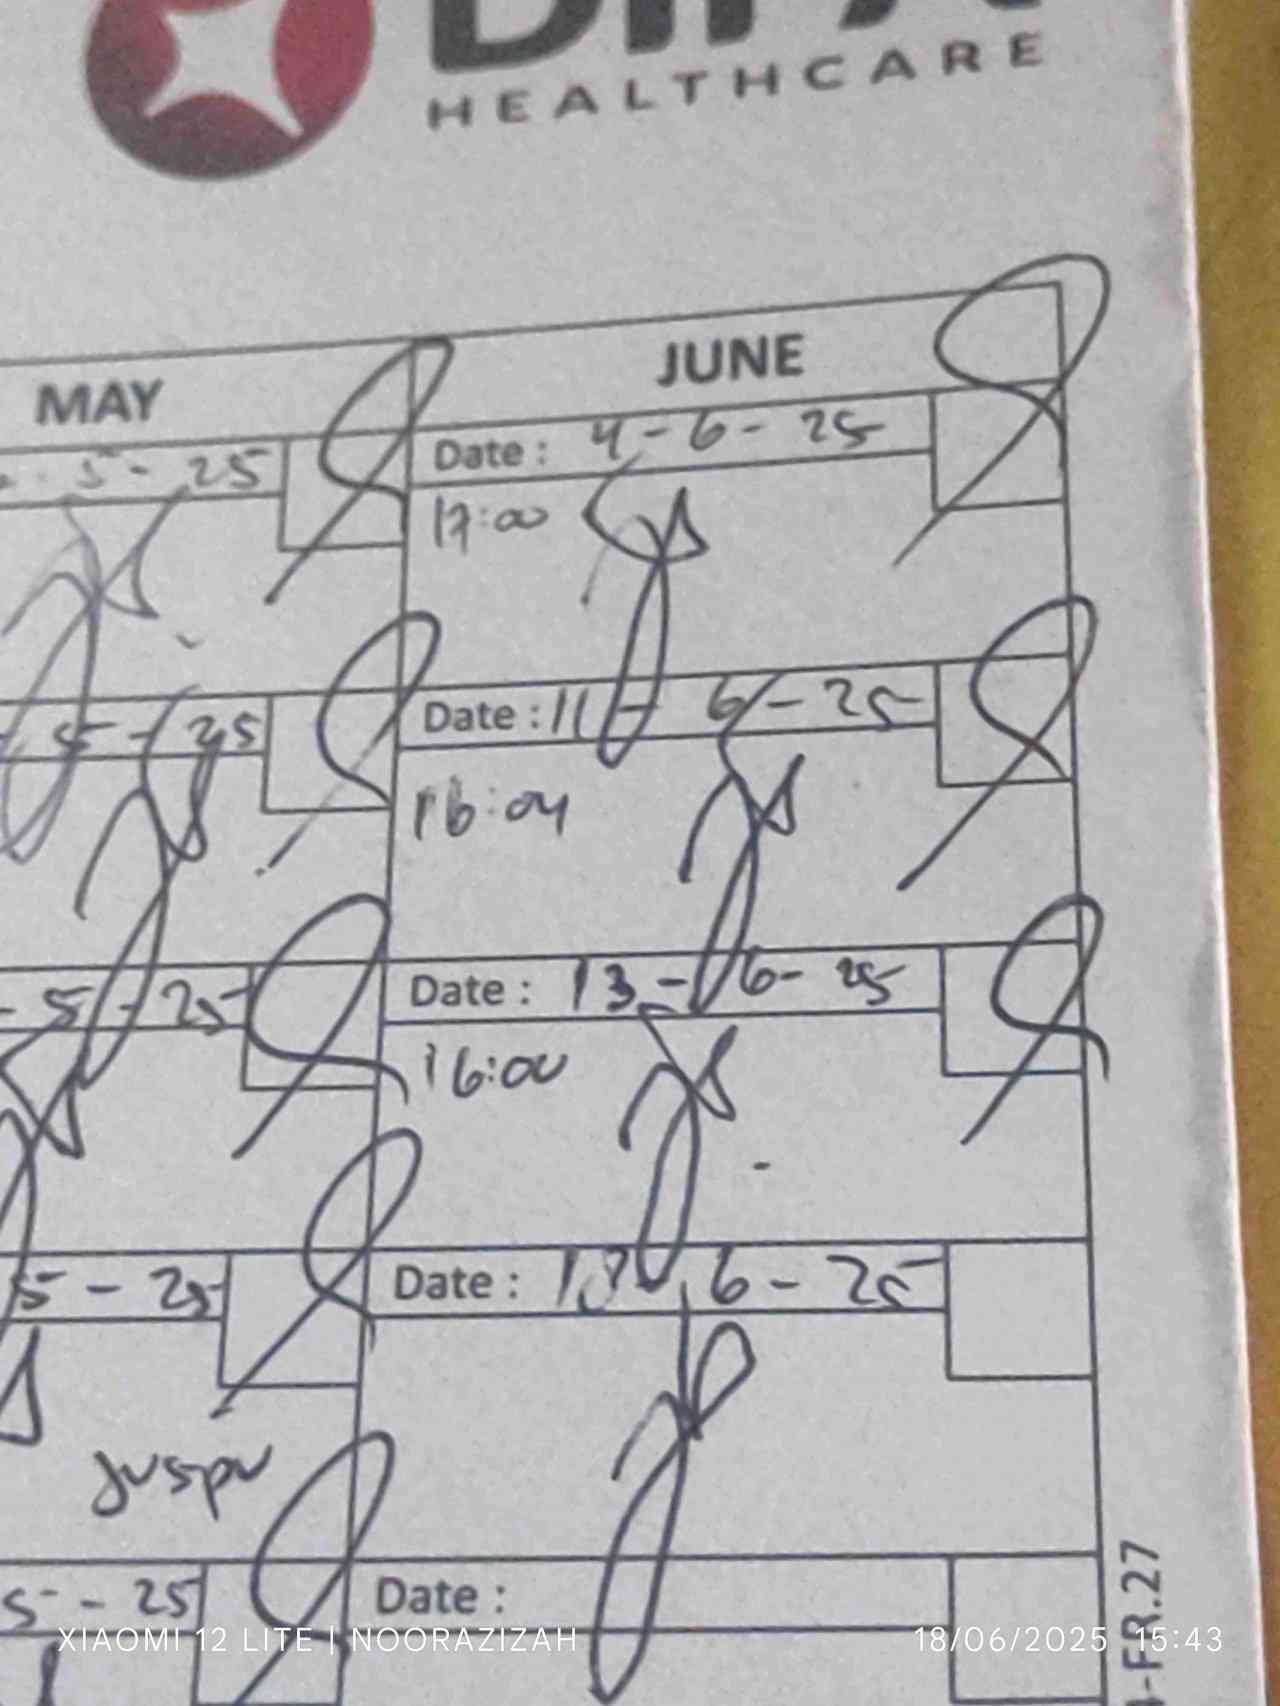 HEALTHCARE
MAY
JUNE
5 - 25
Date : 4 - 6 - 25
17:00
5 - 25
Date : 11 - 6 - 25
16:04
- 5 - 25
Date : 13 - 6 - 25
16:00
5 - 25
Date : 18 6 - 25
5 - 25
Date :
-FR.27
XIAOMI 12 LITE | NOORAZIZAH
18/06/2025 15:43